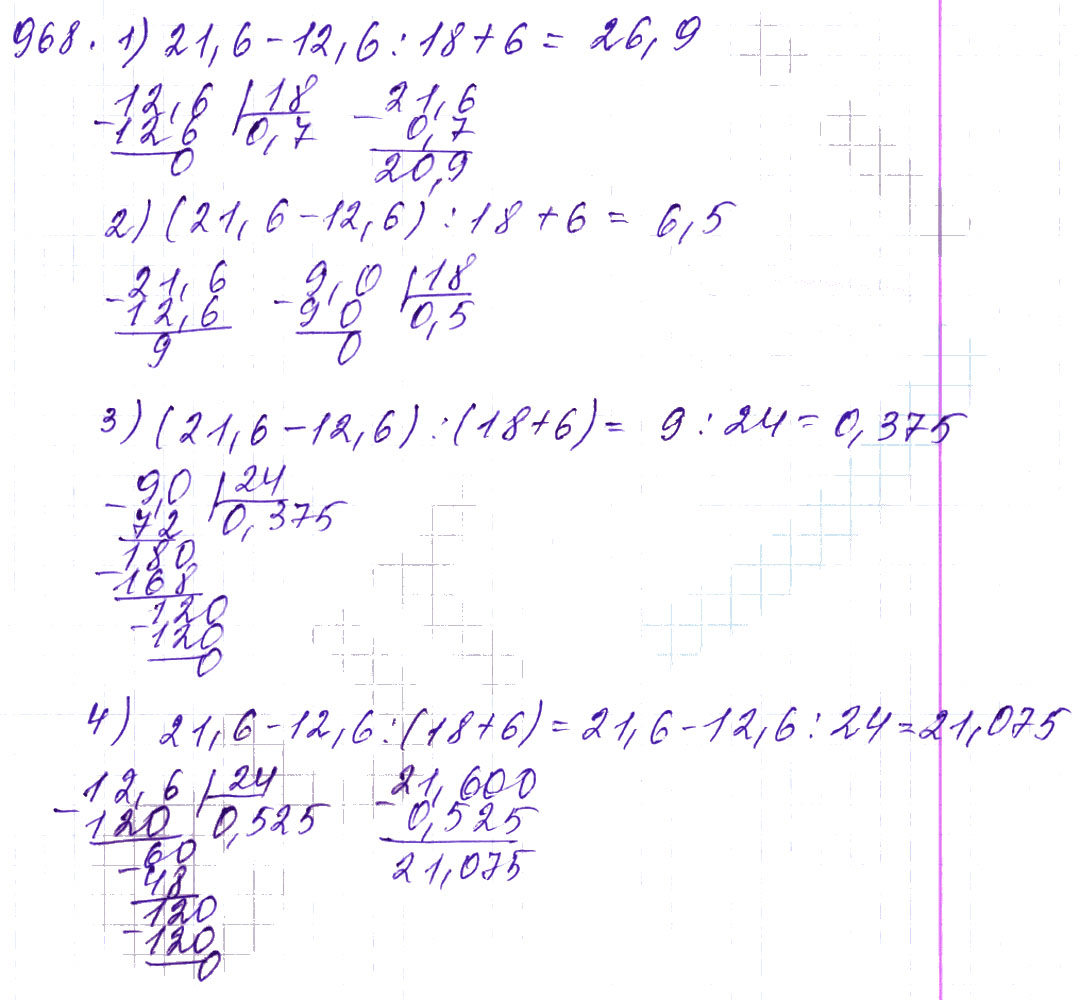 968. 1) 21,6 - 12,6 : 18 + 6 = 26,9
12,6 | 18   21,6
- 126   0,7   - 0,7
0   20,9
2) (21,6 - 12,6) : 18 + 6 = 6,5
21,6   9,0 | 18
- 12,6   - 90   0,5
9   0
3) (21,6 - 12,6) : (18 + 6) = 9 : 24 = 0,375
9,0 | 24
- 72   0,375
180
- 168
120
- 120
0
4) 21,6 - 12,6 : (18 + 6) = 21,6 - 12,6 : 24 = 21,075
12,6 | 24   21,600
- 120   0,525   - 0,525
60   21,075
- 48
120
- 120
0